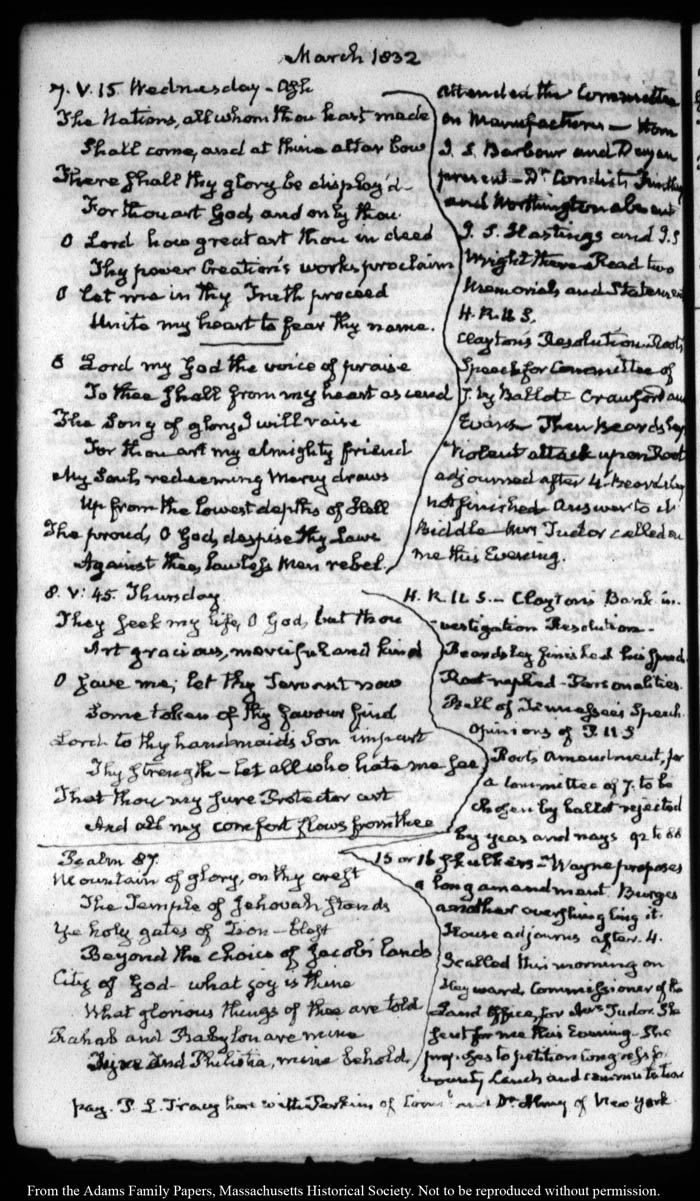 March 1832
7. V. 15. Wednesday -
The Nations, all whom thou hast made
Shall come, and at thine altar bow
There shall thy glory be display'd -
For thou art God, and only thou
O Lord how great art thou in deed
Thy power Creation's works proclaim
O let me in thy Truth proceed
Unite my heart to fear thy name.
O Lord my God the voice of praise
To thee shall from my heart ascend
The Song of glory I will raise
For thou art my almighty friend
My Soul, redeeming Mercy draws
Up from the lowest depths of Hell
The proud, O God, despise thy Laws
Against thee, lawless Men rebel.
attended the Committee
on Manufactures — 
J. S. Barbour and Dayan
present - Dr Condict, Findlay
and Worthington absent
J. S. Hastings and J. S
Wright there. Read two
Memorials and Statement
H. R. U. S.
Clayton's Resolution. Root's
Speech for Committee of
7. by Ballot - Crawford and
Evans - Then Beardsley
violent attack upon Root
adjourned after 4. Beardsley
not finished. Answer to
Biddle - Mrs Tudor called on
me this Evening.
8. V: 45. Thursday
They seek my life, O God, but thou
Art gracious, merciful and kind
O save me; let thy Servant now
Some token of thy favour find
Lord to thy handmaid's Son impart
Thy strength - let all who hate me see
That thou my sure Protector art
And all my comfort flows from thee
H. R. U. S. - Clayton's Bank in-
vestigation Resolution -
Beardsley finished his speech.
Root replied - Personalities.
Bell of Tennessee's Speech.
Opinions of P. U S
Root's Amendment, for
a Committee of 7. to be
chosen by ballot rejected
by yeas and nays 92 to 88
15 or 16 skulkers - Wayne proposes
a long amendment. Burges
another overflinging it.
House adjourns after 4.
I called this morning on
Hayward, Commissioner of the
Land Office, for Mrs Tudor. She
sent for me this Evening - She
proposes to petition Congress for
bounty Lands and commutation
Psalm 87.
Mountain of glory, on thy crest
The Temple of Jehovah stands
Ye holy gates of Zion - blest
Beyond the choice of Jacob's lands
City of God - what joy is thine
What glorious things of thee are told
Rahab and Babylon are mine
Tyre and Philistia, mine behold,
pay. P. L. Tracy here with Perkins of and Dr of New York
From the Adams Family Papers, Massachusetts Historical Society. Not to be reproduced without permission.